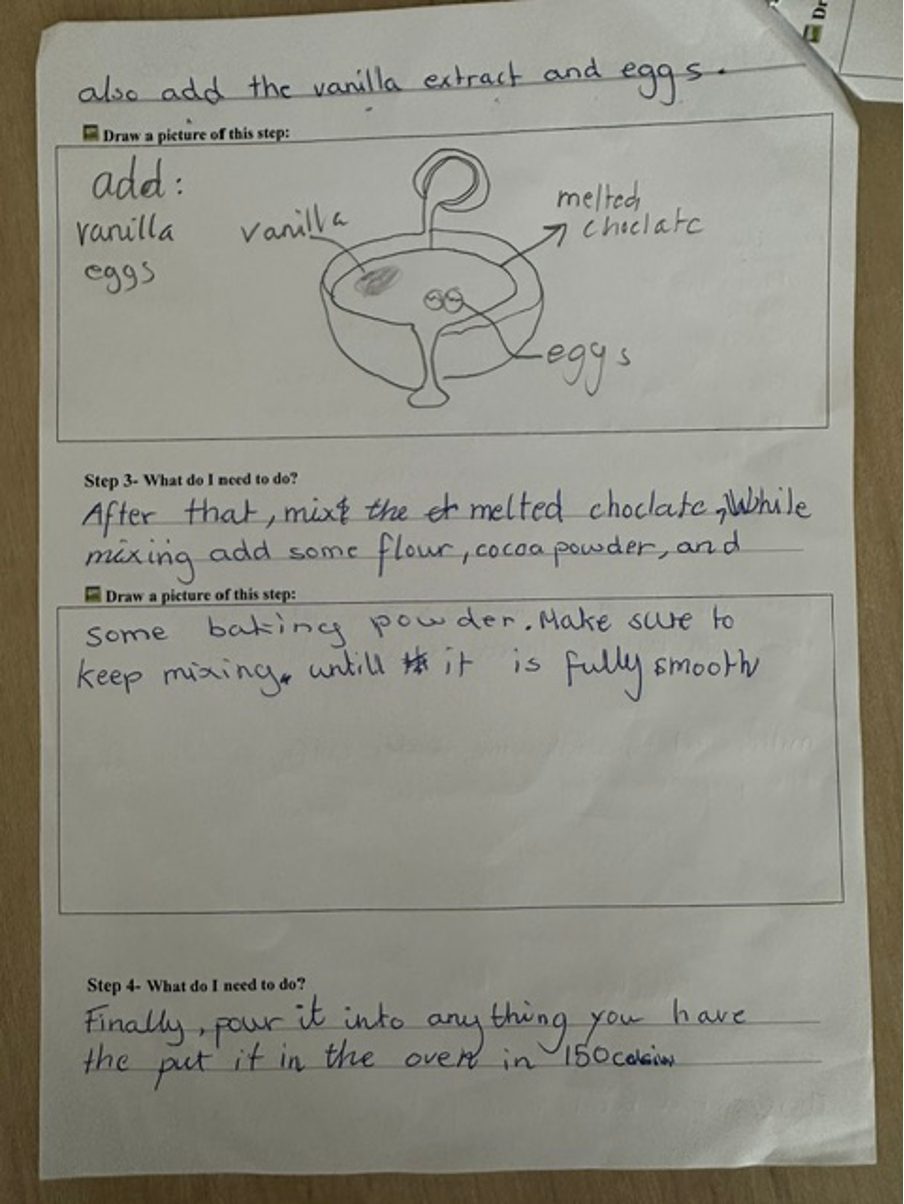 Dr
also add the vanilla extract and eggs.
Draw a picture of this step:
add:
vanilla
eggs
vanilla
melted
choclate
eggs
Step 3- What do I need to do?
After that, mix the melted choclate, While
mixing add some flour, cocoa powder, and
Draw a picture of this step:
some baking powder. Make sure to
keep mixing. untill it is fully smooth
Step 4- What do I need to do?
Finally, pour it into any thing you have
the put it in the oven in 150